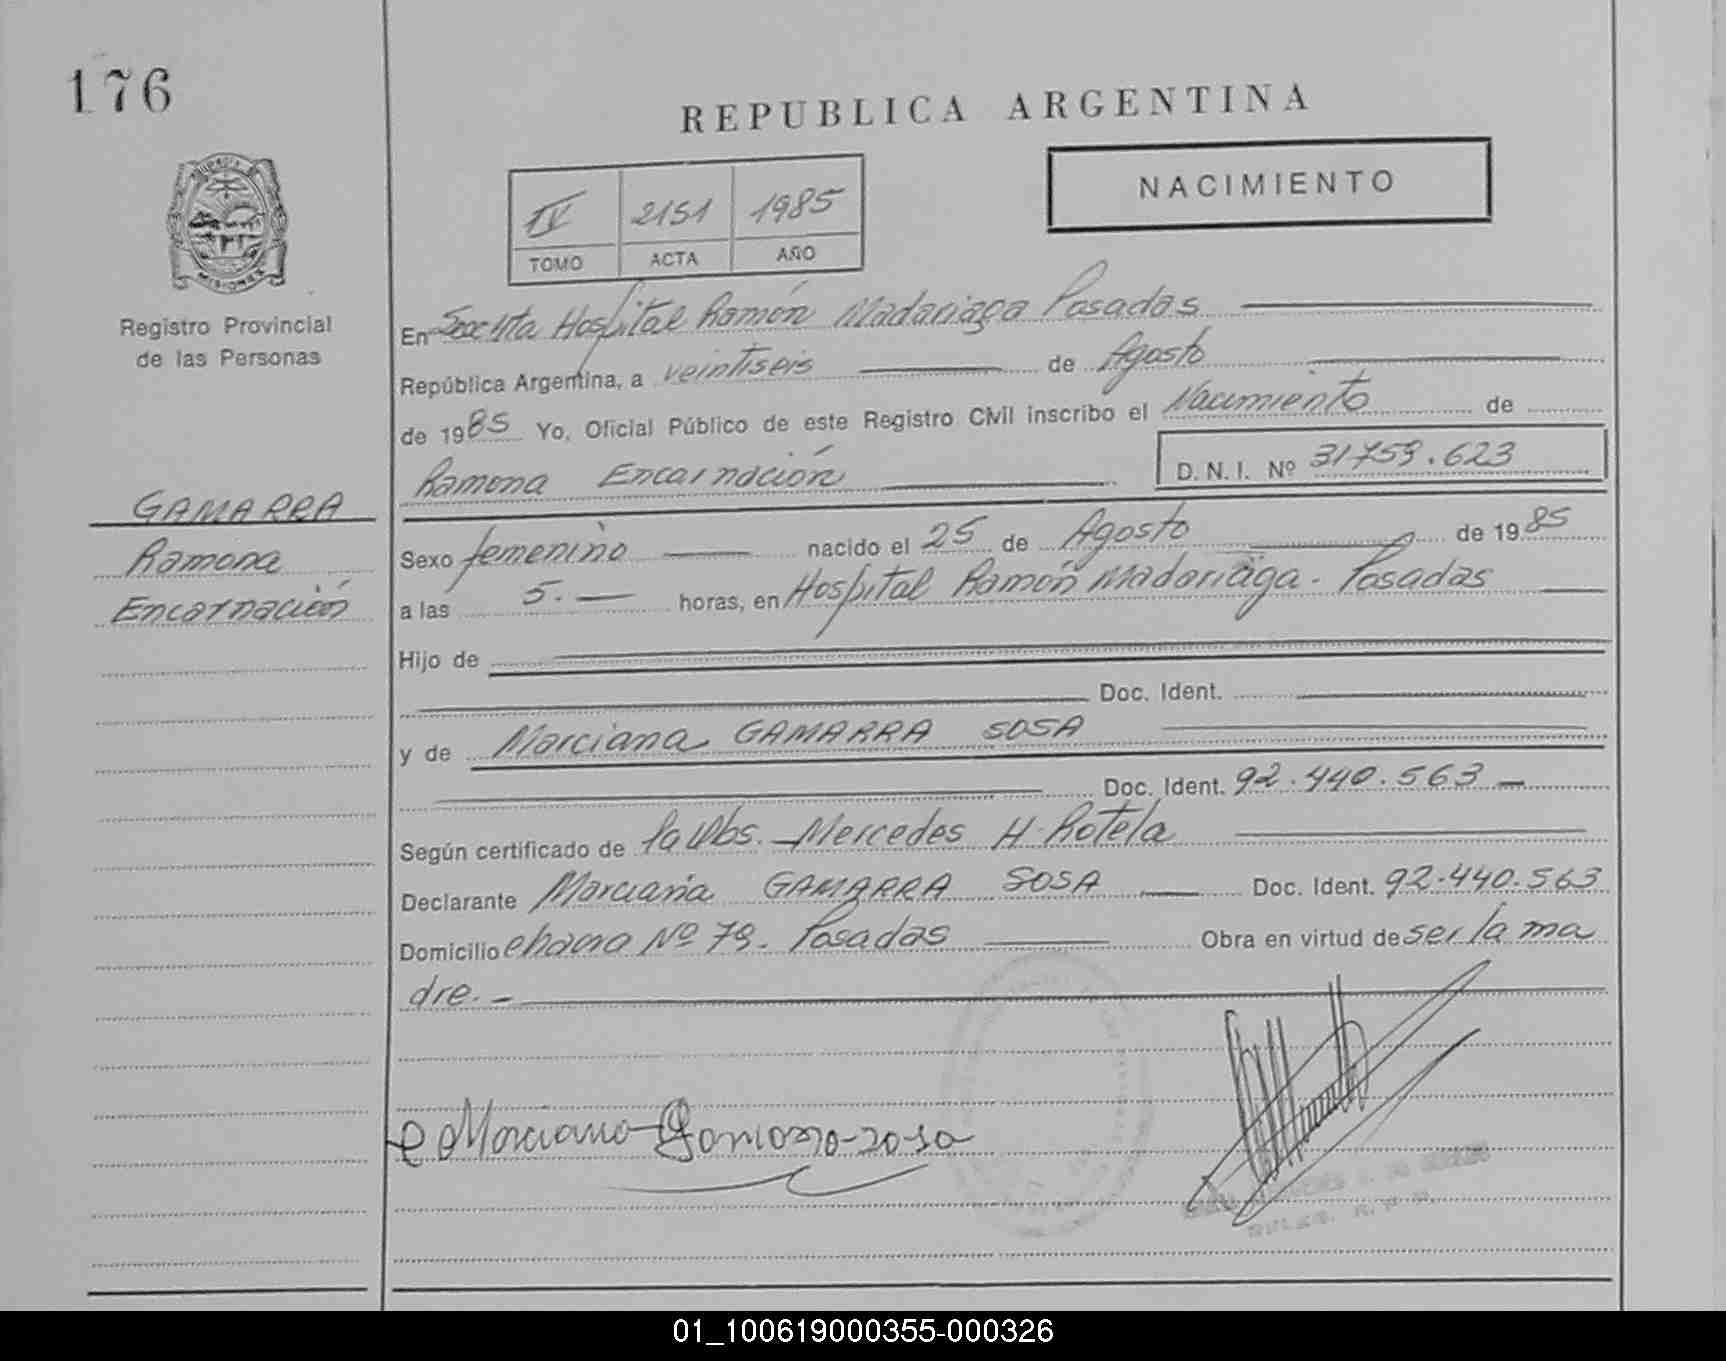 176
REPUBLICA ARGENTINA
NACIMIENTO
IV 2151 1985
TOMO ACTA AÑO
MISIONES
Registro Provincial
de las Personas
En Hospital Ramón Madariaga Posadas
República Argentina, a veintiseis de Agosto
de 1985 Yo, Oficial Público de este Registro Civil inscribo el Nacimiento de
Ramona Encarnación
D.N.I. Nº 31753.623
GAMARRA
Ramona
Encarnación
Sexo femenino nacido el 25 de Agosto de 1985
a las 5.— horas, en Hospital Ramón Madariaga - Posadas
Hijo de
Doc. Ident.
y de Marciana GAMARRA SOSA
Doc. Ident. 92.440.563 —
Según certificado de la Obs. Mercedes H. Rotela
Declarante Marciana GAMARRA SOSA Doc. Ident. 92.440.563
Domicilio chacra Nº 79. Posadas Obra en virtud de ser la ma
dre. -
Marciana Gamarra
01_100619000355-000326